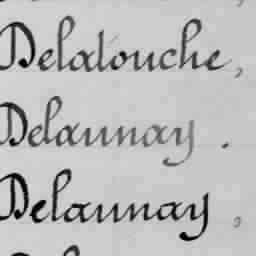 Delatouche,
Delaunay.
Delaunay,